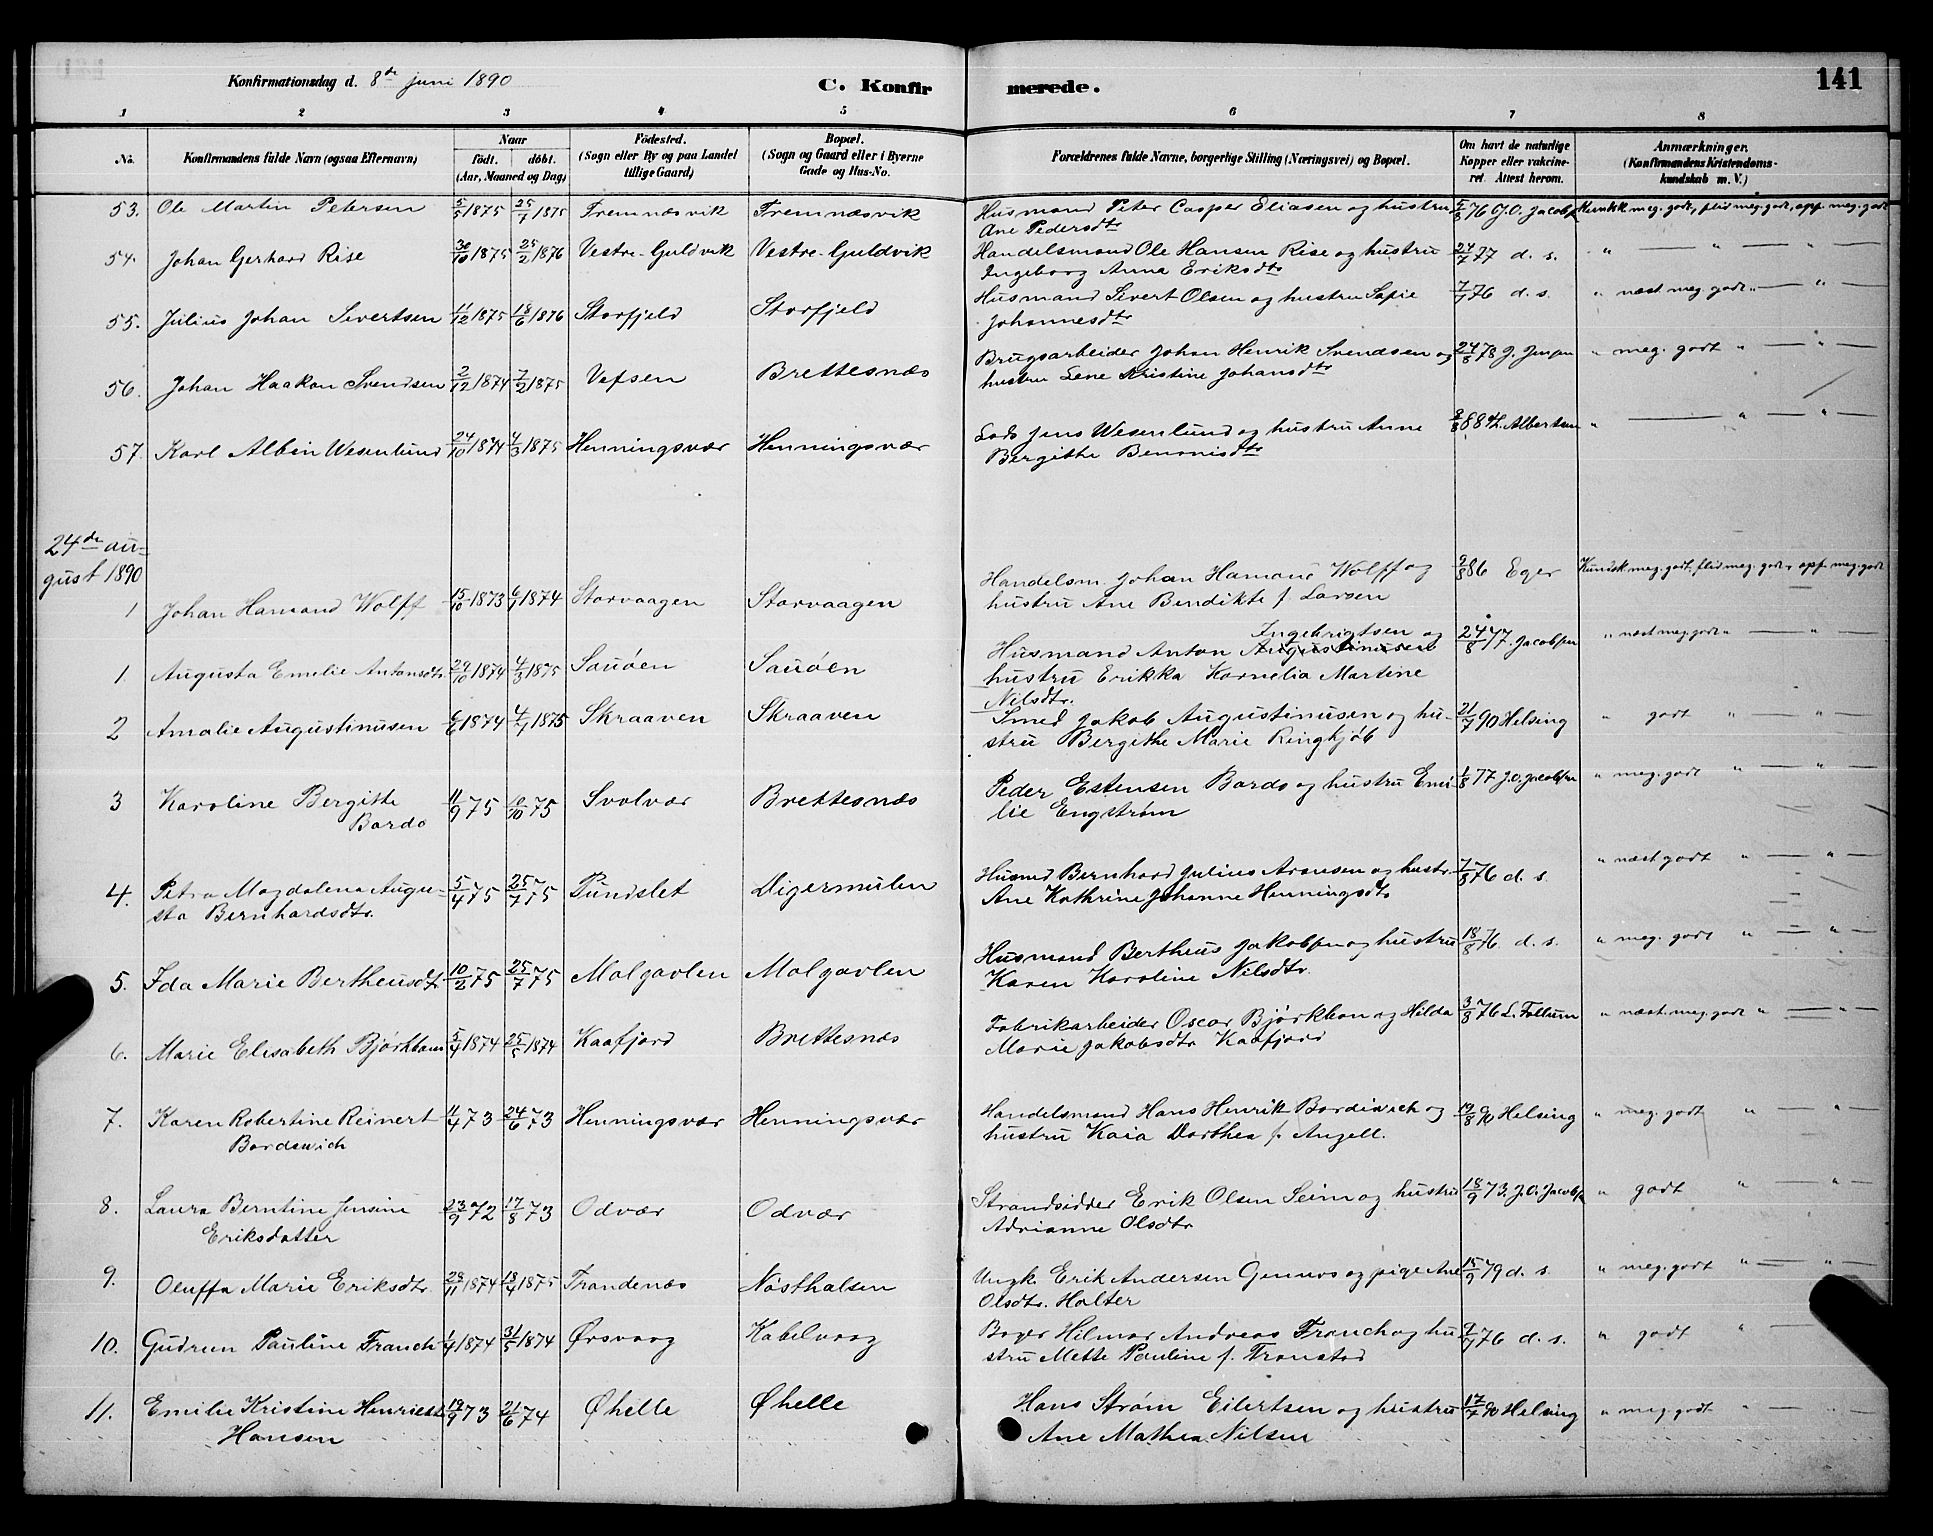 Konfirmationsdag d. 8de juni 1890 C. Konfirmerede. 141
1 2 3 4 5 6 7 8
No. Konfirmandens fulde Navn (ogsaa Efternavn) Naar født. døbt. (Aar, Maaned og Dag) Fødested. (Sogn eller By og paa Landet tillige Gaard) Bopæl. (Sogn og Gaard eller i Byerne Gade og Hus-No. Forældrenes fulde Navne, borgerlige Stilling (Næringsvei) og Bopæl. Om havt de naturlige Kopper eller vakcineret. Attest herom. Anmærkninger. (Konfirmandens Kristendomskundskab m. V.)
53. Ole Martin Petersen 5/5 1875 25/7 1875 Fremnæsvik Fremnæsvik Husmand Peter Casper Eliasen og hustru 76 J.O. Jacobsen Kundsk. meg. godt, flid meg. godt, opf. meg. godt
Ane Pedersdtr
54. Johan Gerhard Rise 30/10 1875 25/2 1876 Vestre-Guldvik Vestre-Guldvik Handelsmand Ole Hansen Rise og hustru 24/7 77 d. s. " — " — " —
Ingeborg Anna Eriksdtr
55. Julius Johan Sivertsen 11/12 1875 18/6 1876 Storfjeld Storfjeld Husmand Sivert Olsen og hustru Sofie 7/7 76 d. s. " næst meg. godt " — " —
Johannesdtr
56. Johan Haakon Svendsen 2/12 1874 7/2 1875 Vefsen Brettesnæs Brugsarbeider Johan Henrik Svendsen og 24/8 78 J. Jensen " meg. godt " — " —
hustru Lene Kristine Johansdtr
57. Karl Albin Wesenlund 24/10 1874 4/3 1875 Henningsvær Henningsvær Lods Jens Wesenlund og hustru Anne 88 Albertsen " — " — " —
Bergithe Benonisdtr
24de au-
gust 1890
1 Johan Hamond Wolff 15/10 1873 6/7 1874 Storvaagen Storvaagen Handelsm. Johan Hamond Wolff og 9/8 86 Eger Kundsk. meg. godt, flid meg. godt, opf. meg. godt
hustru Ane Bendikte f. Larsen
Ingebrigtsen og
1. Augusta Emelie Antonsdtr. 29/10 1874 4/3 1875 Sauøen Sauøen Husmand Anton Augustinusen 24/8 77. Jacobsen " næst meg. godt " — " —
hustru Erikka Kornelia Martine
Nilsdtr.
2 Amalie Augustinusen 6/6 1874 4/7 1875 Skraaven Skraaven Smed Jakob Augustinusen og hu- 21/7 90 Helsing " godt " — " —
stru Bergithe Marie Ringkjøb
3 Karoline Bergitte 11/9 75 10/10 75 Svolvær Brettesnæs Peder Estensen Bardo og hustru Emi- 1/8 77 J.O. Jacobsen " meg. godt " — " —
Bardo lie Engstrøm
4. Petra Magdalena Augu- 5/4 75 25/7 75 Pundslet Digermulen Husmd Bernhard Julius Aronsen og hustr. 7/8 76 d. s. " næst godt " — " —
sta Bernhardsdtr. Ane Kathrine Johanne Henningsdtr
5. Ida Marie Bertheusdtr 10/2 75 25/7 75 Molgavlen Molgavlen Husmand Bertheus Jakobsen og hustru 18/8 76. d. s. " meg. godt " — " —
Karen Karoline Nilsdtr.
6. Marie Elisabeth Bjørkbom 5/4 1874 25/5 1874 Kaafjord Brettesnæs Fabrikarbeider Oscar Bjørkbom og Hilda 3/8 76 L. Follum " næst. meg. godt " — " —
Marie Jakobsdtr Kaafjord
7. Karen Robertine Reinert 11/4 73 24/6 73 Henningsvær Henningsvær Handelsmand Hans Henrik Bordewich og 19/8 90 Helsing " meg. godt " — " —
Bordewich hustru Kaia Dorthea f. Angell.
8. Laura Berntine Jensine 23/9 72 17/8 73 Odvær Odvær Strandsidder Erik Olsen Seim og hustru 18/9 73. J.O. Jacobsen " godt " — " —
Eriksdatter Adrianne Olsdtr
9. Oluffa Marie Eriksdtr. 28/11 1874 18/4 1875 Trandenæs Næsthalsen Ungk. Erik Andersen og pige Ane 15/9 79 d. s. " meg. godt " — " —
Olsdtr. Halter
10. Gudrun Pauline Franch 1/4 1874 31/5 1874 Ørsvaag Kabelvaag Bager Hilmar Andreas Franch og hu 9/9 76 d. s. " godt " —
stru Mette Pauline f. Fronstad
11. Emilie Kristine Henriette 19/9 73 21/6 74 Øhelle Øhelle Hans Strøm Eilertsen og hustru 17/7 90 Helsing " meg. godt " —
Hansen Ane Mathea Nilsen